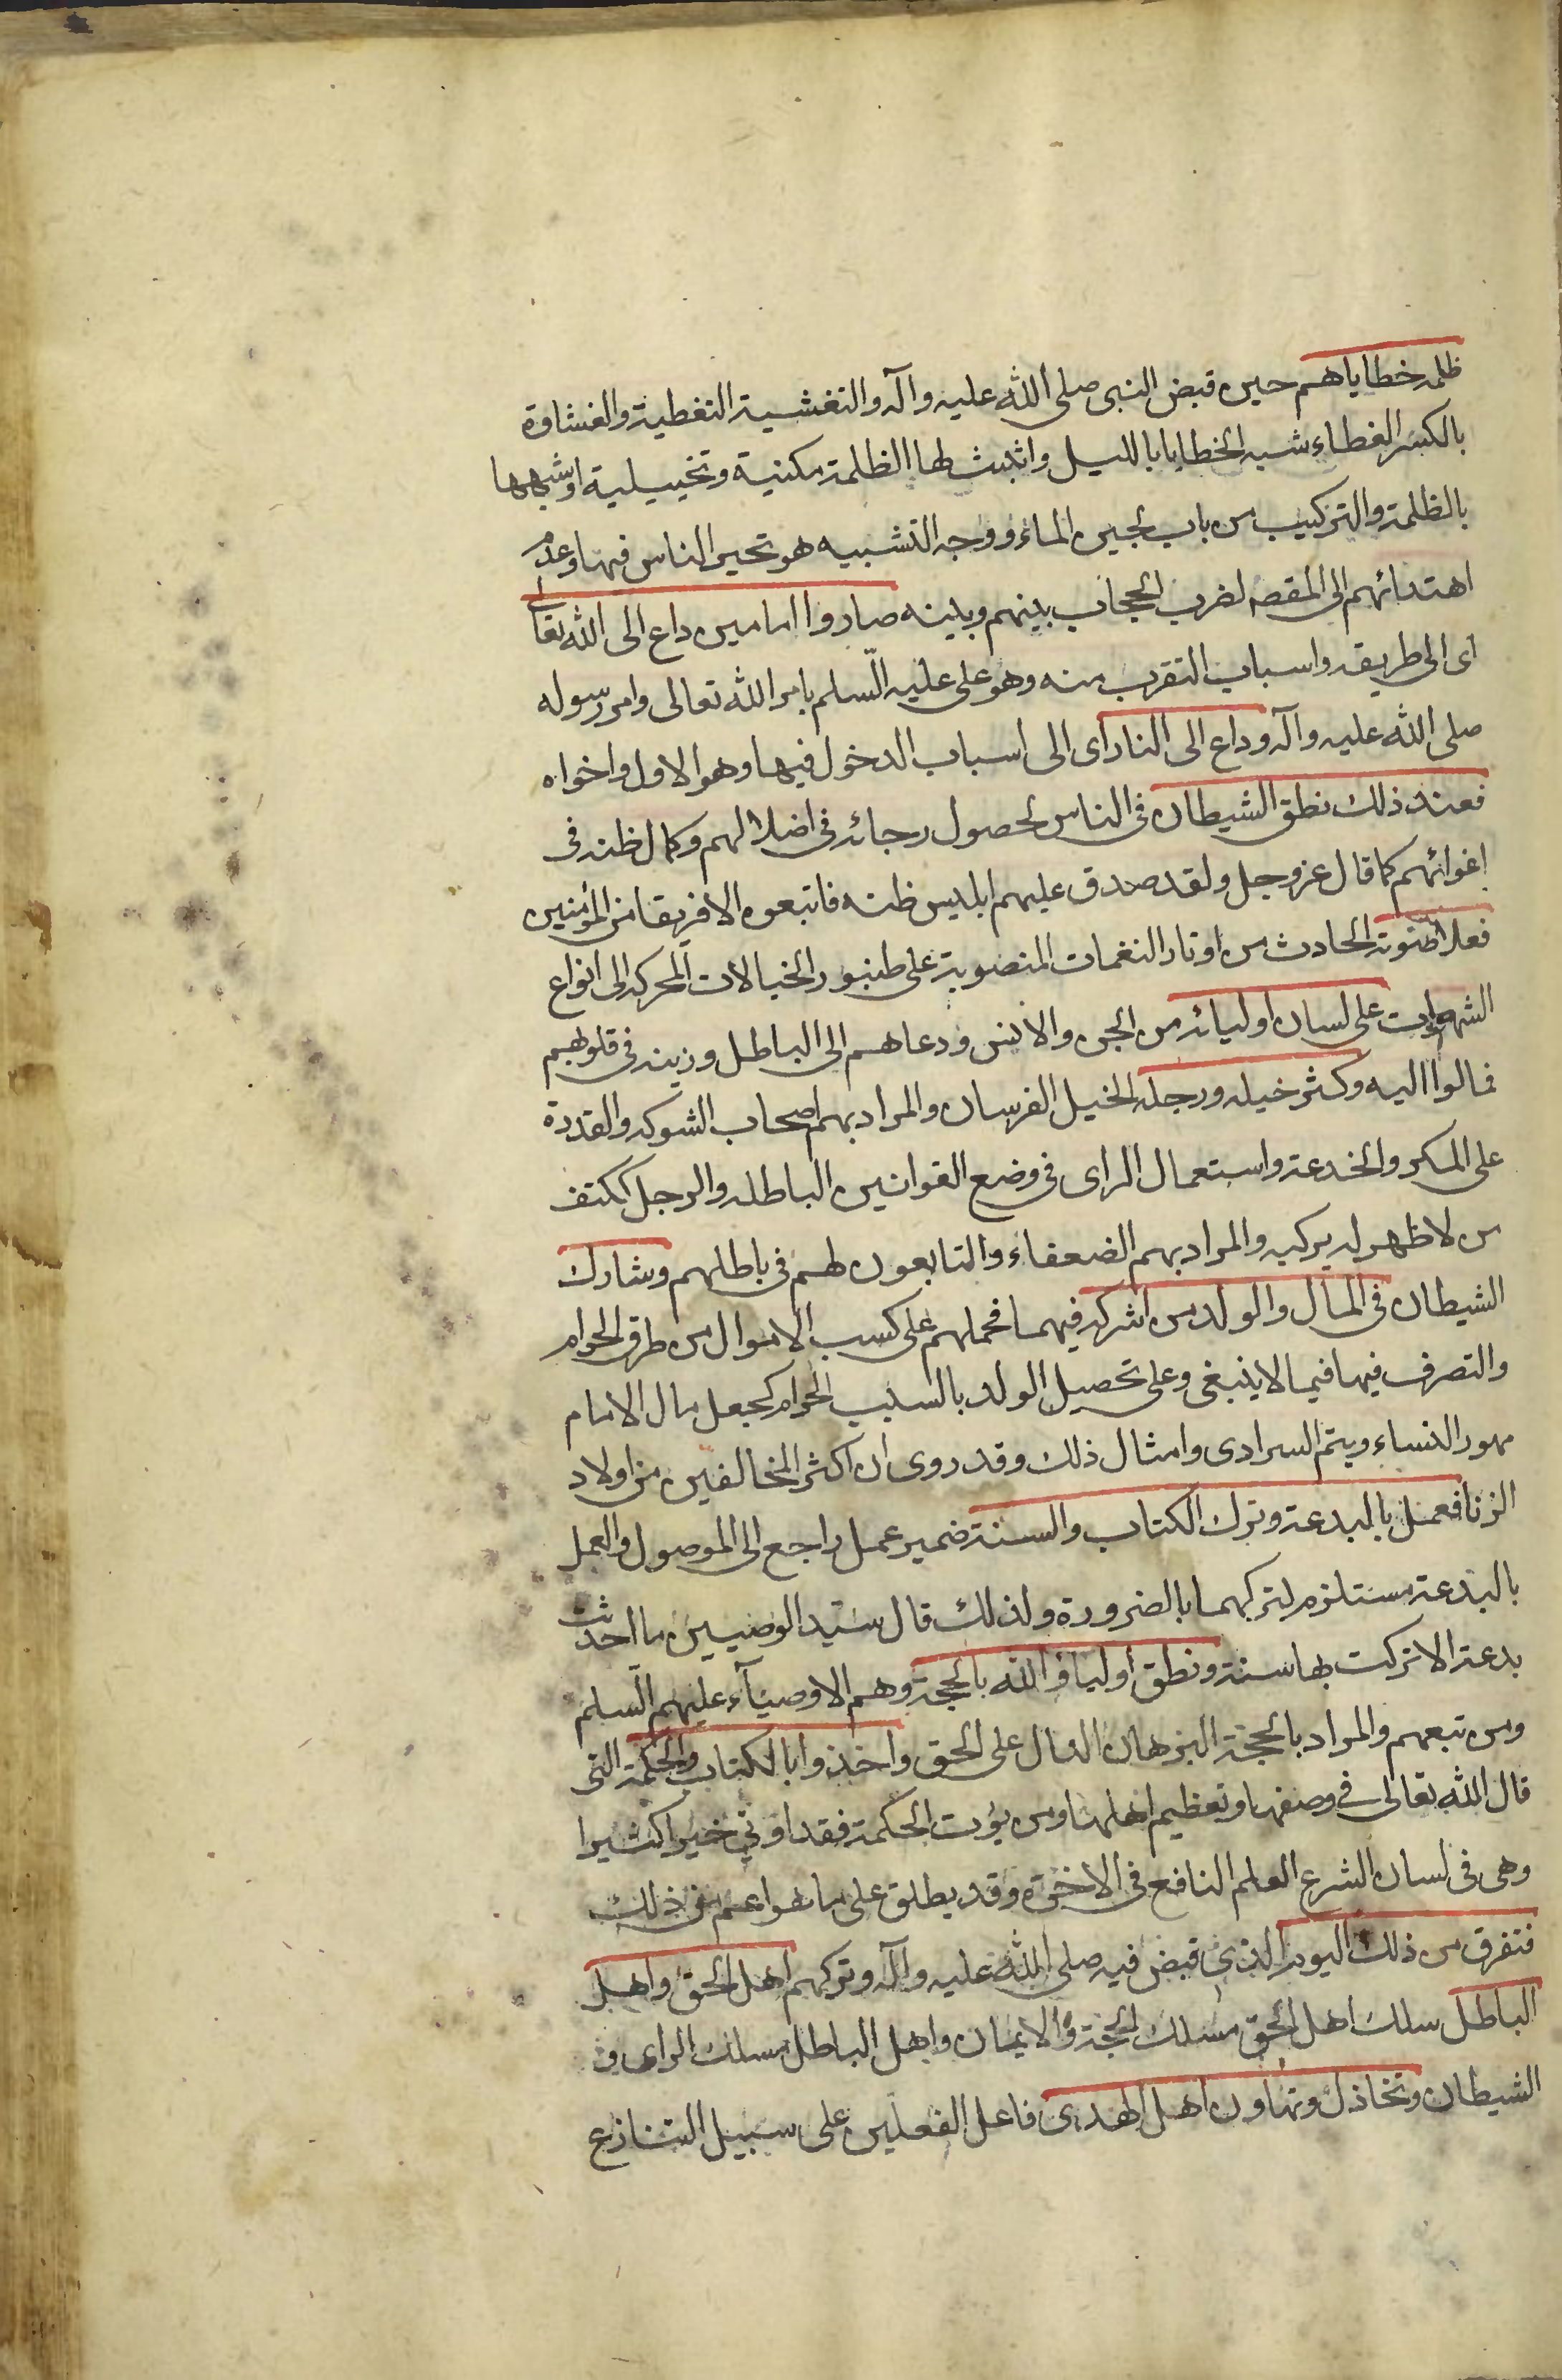 ظلمة خطاياهم حين قبض النبى صلى الله عليه وآله والتغشية التغطية والغشاوة
بالكسر الغطاء شبه الخطايا بالليل واثبت لها الظلمة مكنية وتخييلية او شبهها
بالظلمة والتركيب من باب لجين الماء ووجه التشبيه هو تحير الناس فيها وعدم
اهتدائهم الى المقصد لضرب الحجاب بينهم وبينه صاروا امامين داع الى الله تعالى
اى الى طريقه واسباب التقرب منه وهو على عليه السلم بامر الله تعالى وامر رسوله
صلى الله عليه وآله وداع الى النار اى الى اسباب الدخول فيها وهو الاول واخواه
فعند ذلك نطق الشيطان فى الناس لحصول رجائه فى اضلالهم وكمال ظنه فى
اغوائهم كما قال عز وجل ولقد صدق عليهم ابليس ظنه فاتبعوه الا فريقا من المؤمنين
فعلا صوته الحادث من اوتار النغمات المنصوبة على طنبور الخيالات المحركه الى انواع
الشهوات على لسان اوليائه من الجن والانس ودعاهم الى الباطل وزينه فى قلوبهم
فمالوا اليه وكثر خيله ورجله الخيل الفرسان والمراد بهم اصحاب الشوكه والقدرة
على المكر والخدعة واستعمال الراى فى وضع القوانين الباطله والرجل ككتف
من لا ظهر له يركبه والمراد بهم الضعفاء والتابعون لهم فى باطلهم وشارك
الشيطان فى المال والولد من اشركه فيهما فحملهم على كسب الاموال من طرق الحرام
والتصرف فيها فيما لا ينبغى وعلى تحصيل الولد بالسبب الحرام كجعل مال الامام
مهور النساء وقيم السرارى وامثال ذلك وقد روى ان اكثر المخالفين من اولاد
الزنا فعمل بالبدعة وترك الكتاب والسنة ضمير عمل راجع الى الموصول والعمل
بالبدعة مستلزم لتركهما بالضرورة ولذلك قال سيد الوصيين ما احدثت
بدعة الا تركت بها سنة ونطق اولياؤ الله بالحجة وهم الاوصيآء عليهم السلم
ومن تبعهم والمراد بالحجة البرهان الدال على الحق واخذوا بالكتاب والحكمة التى
قال الله تعالى فى وصفها وتعظيم اهلها ومن يؤت الحكمة فقد اوتى خيرا كثيرا
وهى فى لسان الشرع العلم النافع فى الاخرة وقد يطلق على ما هو اعم من ذلك
فتفرق من ذلك اليوم الذى قبض فيه صلى الله عليه وآله وتركهم اهل الحق واهل
الباطل سلك اهل الحق مسلك الحجة والايمان واهل الباطل مسلك الراى و
الشيطان وتخاذل وتهاون اهل الهدى فاعل الفعلين على سبيل التنازع